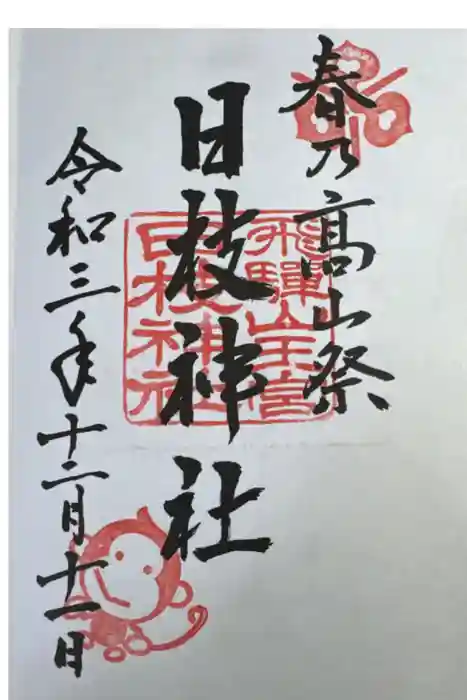 春乃高山祭
日枝神社
飛騨山王宮
日枝神社
令和三年十二月十一日